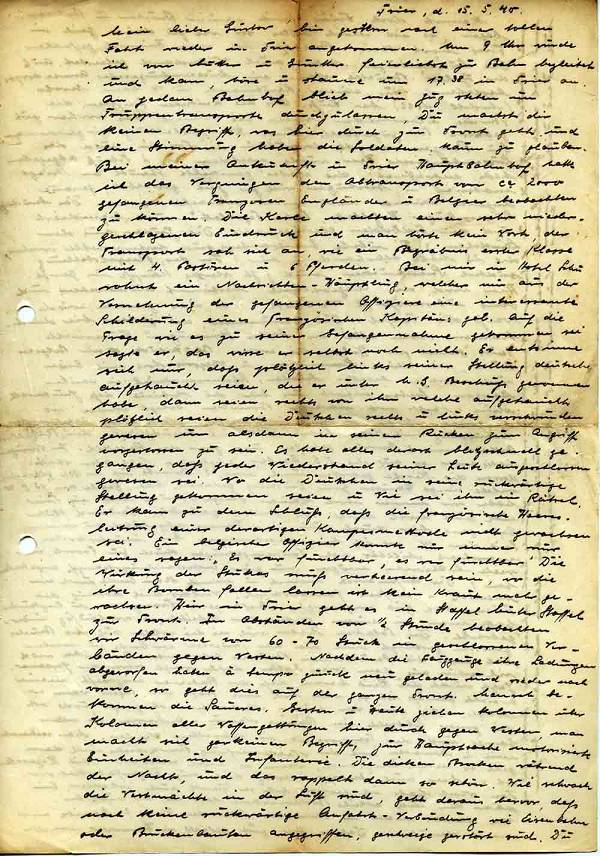 Trier, d. 15.5.40.
Mein lieber Gustav, bin gestern nach einer tollen
Fahrt wieder in Trier angekommen. Um 9 Uhr wurde
ich von Mutter u Günther feierlichst zur Bahn begleitet
und kam, höre u staune um 17.38 in Trier an.
An jedem Bahnhof blieb mein Zug stehen um
Truppentransporte durchzulassen, Du machst dir
keinen Begriff, was hier durch zur Front geht und
eine Stimmung haben die Soldaten. Kaum zu glauben.
Bei meiner Ankunft in Trier Hauptbahnhof hatte
ich das Vergnügen den Abtransport von ca 2000
gefangenen Franzosen Engländer u Belgier beobachten
zu können. Die Kerle machten einen sehr nieder-
geschlagenen Eindruck und man hörte kein Wort der
Transport sah sich an wie ein Begräbnis erster Klasse
mit 4. Pastören u 6 Pferden. Bei mir im Hotel
wohnt ein Nachrichten-Häuptling, welcher mir aus der
Vernehmung der gefangenen Offiziere eine interessante
Schilderung eines französischen Kapitäns gab. Auf die
Frage wie es zu seiner Gefangennahme gekommen sei
sagte er, das wisse er selbst noch nicht. Er entsinne
sich nur, daß plötzlich links seiner Stellung deutsche
aufgetaucht seien, die er unter Beschuß genommen
habe dann seien rechts von ihm welche aufgetaucht
plötzlich seien die Deutschen rechts u links verschwunden
gewesen um alsdann in seinem Rücken zum Angriff
vorgestossen zu sein. Es habe alles derart blitzschnell ge-
gangen, daß jeder Wiederstand seiner Leute ausgeschlossen
gewesen sei. Wo die Deutschen in seine rückwärtige
Stellung gekommen seien u Wie sei ihm ein Rätsel.
Er kam zu dem Schluß, daß die französische Heeres-
leitung einer derartigen Kampfmethode nicht gewachsen
sei. Ein belgischer Offizier konnte nur immer nur
eines sagen: „Es war furchtbar, es war furchtbar. Die
Wirkung der Stukas muß verheerend sein, wo die
ihre Bomben fallen lassen ist kein Kraut mehr ge-
wachsen. Hier in Trier geht es in Staffel hinter Staffel
zur Front. In Abständen von ½ Stunde beobachten
wir Schwärme von 60-70 Stück in geschlossenen Ver-
bänden gegen Westen. Nachdem die Flugzeuge ihre Ladungen
abgeworfen haben à tempo zurück neu geladen und wieder nach
vorne, so geht dies auf der ganzen Front.
kommen die Saures. Gestern u Heute ziehen Kolonnen über
Kolonnen aller Waffengattungen hier durch gegen Westen, man
macht sich gar keinen Begriff, zur Hauptsache motorisierte
Einheiten und Infanterie. Die dicken Brocken während
der Nacht, und das rappelt dann so schön. Wie schwach
die Westmächte in der Luft sind, geht daraus hervor, daß
noch keine rückwärtige Anfahrt-Verbindung wie Eisenbahn
oder Brückenbauten angegriffen, geschweige gestört sind. Du